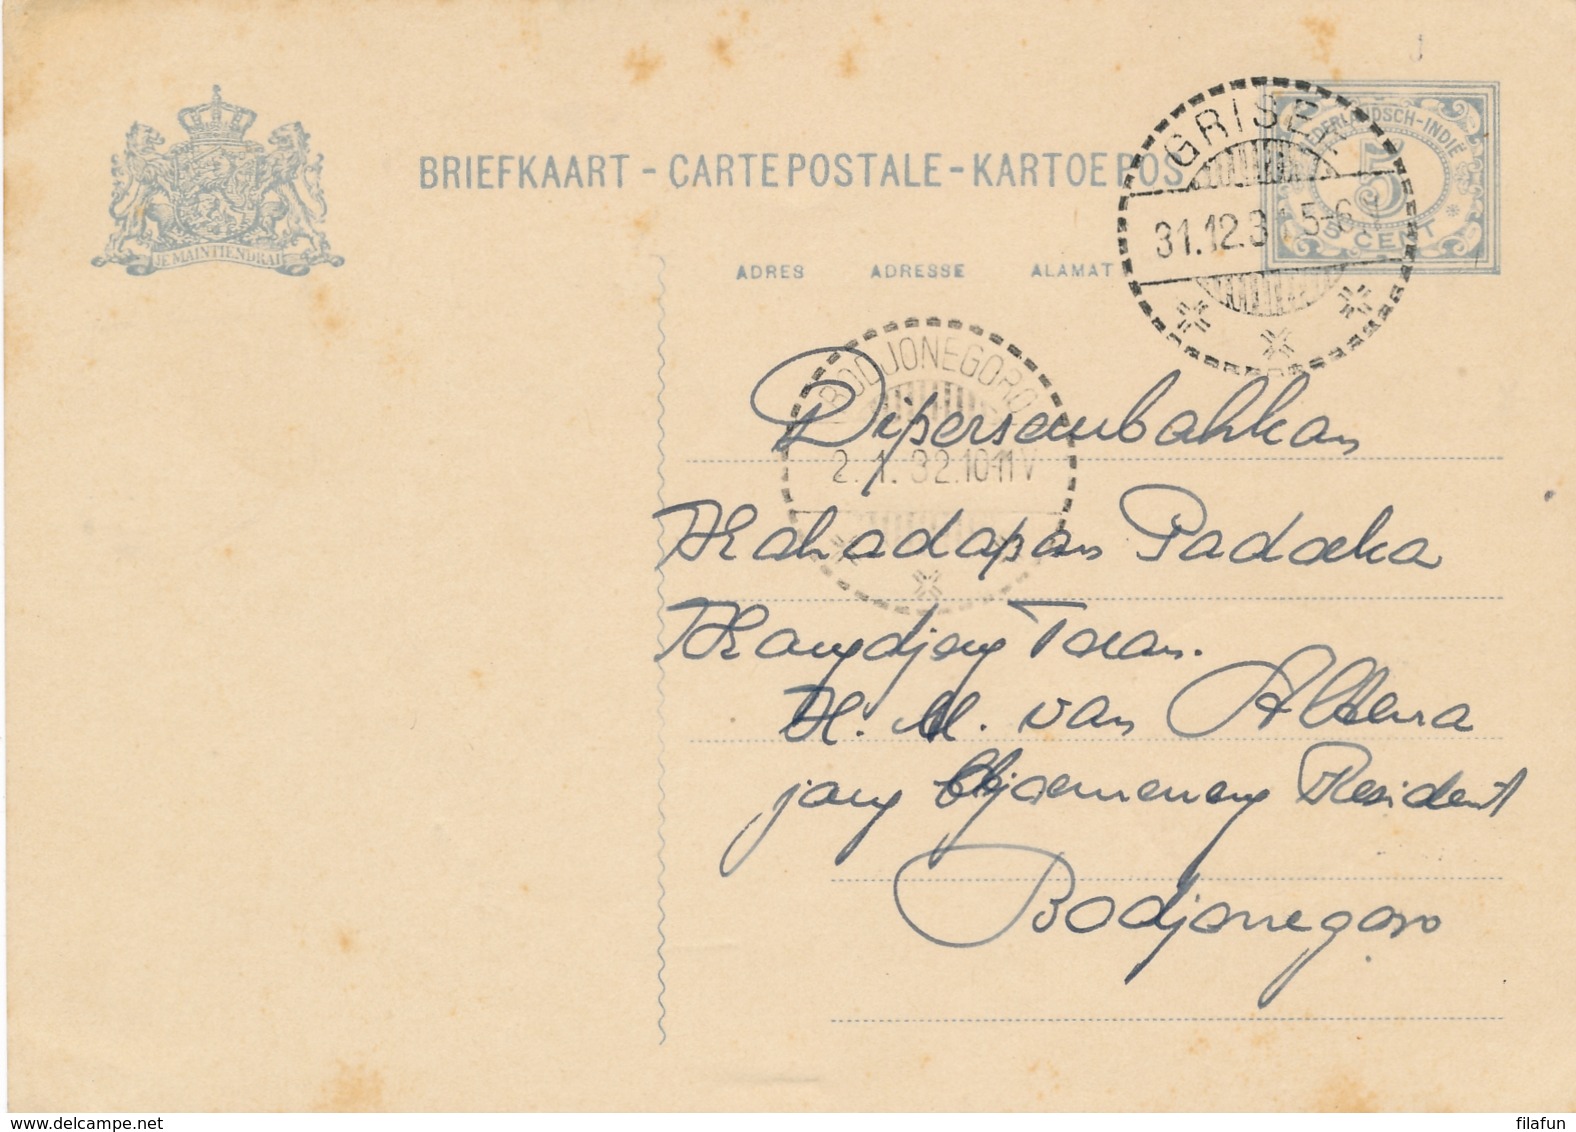 BRIEFKAART - CARTE POSTALE - KARTOE POS
JE MAINTIENDRAI
NEDERLANDSCH-INDIË
5
5 CENT
GRISEE
31.12.31 5-6
ADRES ADRESSE ALAMAT
BODJONEGORO
2.1.32.10-11V
Dipersembahkan
Kahadapan Padoeka
Kangdjeng Toean.
H. M. van Altena
jang Chjoemeneng Resident
Bodjonegoro
www.delcampe.net
filafun